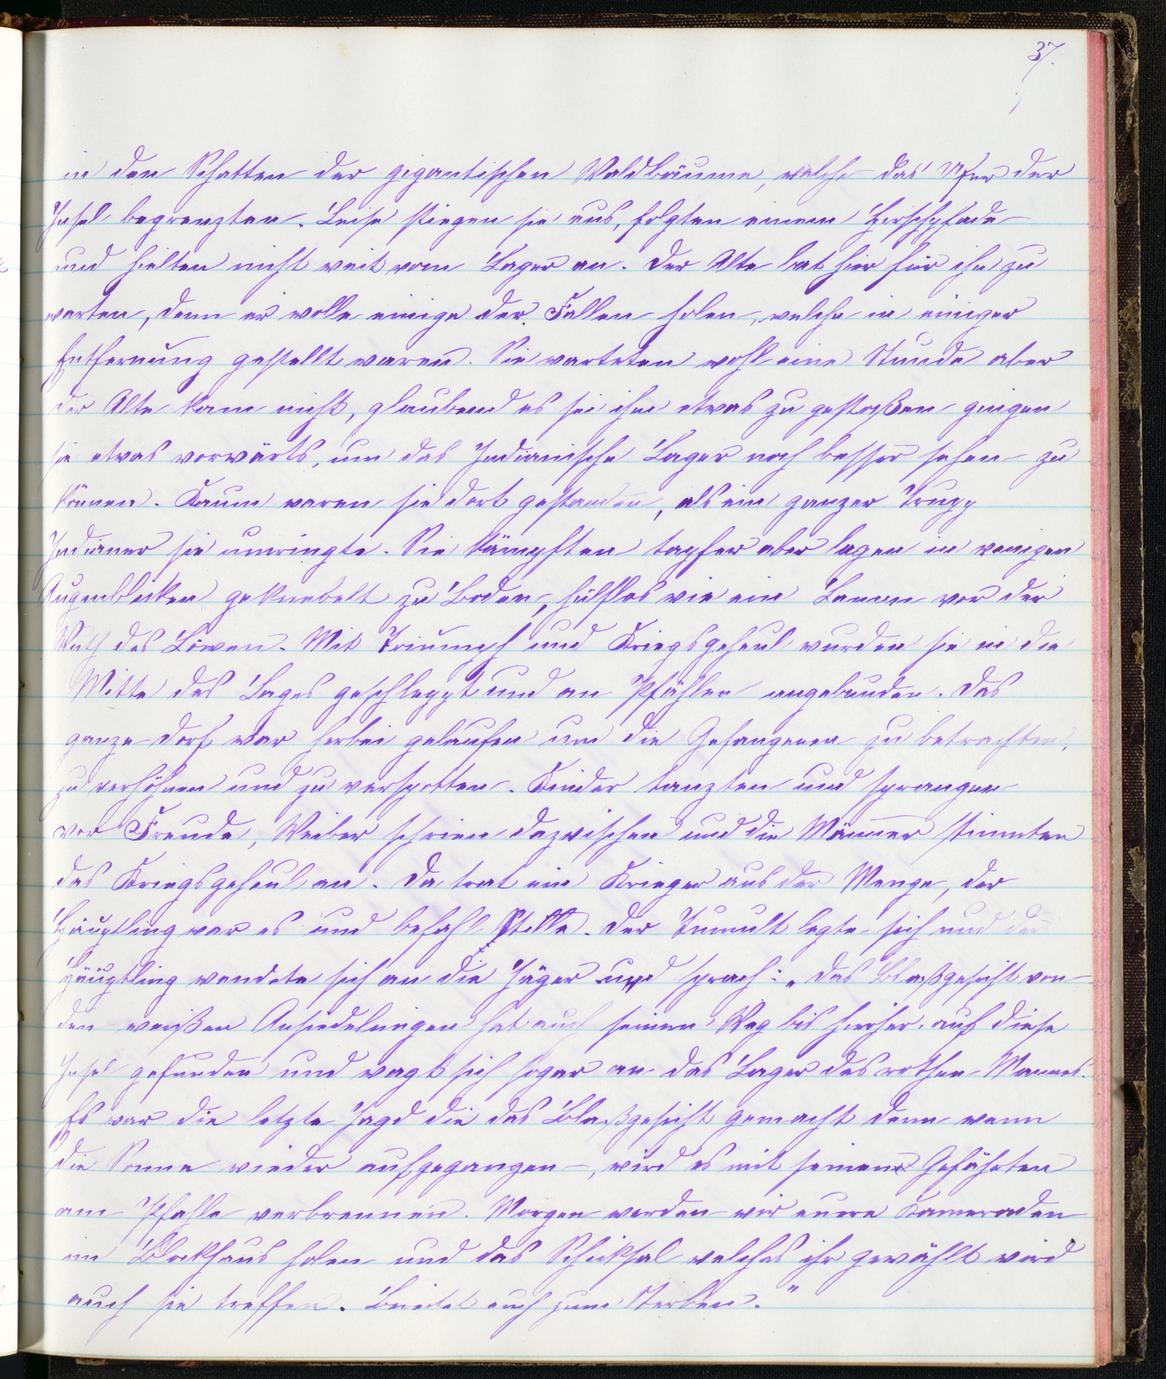 37.
in den Schatten der gigantischen Waldbäume, welche das Ufer der
Insel begrenzten. Leise stiegen sie aus, folgten einem Hirschpfade
und hielten nicht weit vom Lager an. Der Alte bat hier für ihn zu
warten, denn er wolle einige der Fallen holen, welche in einiger
Entfernung gestellt waren. Sie warteten wohl eine Stunde aber
der Alte kam nicht, glaubend es sei ihm etwas zu gestoßen gingen
sie etwas vorwärts, um das Indianische Lager noch besser sehen zu
können. Kaum waren sie dort gestanden, als ein ganzer Trupp
Indianer sie umringte. Sie kämpften tapfer aber lagen in wenigen
Augenblicken geknebelt zu Boden, hülflos wie ein Lamm vor der
Wuth des Löwen. Mit Triumph und Kriegsgeheul wurden sie in die
Mitte des Lagers geschleppt und an Pfählen angebunden. Das
ganze Dorf war herbei gelaufen um die Gefangenen zu betrachten,
zu verhöhnen und zu verspotten. Kinder tanzten und sprangen
vor Freude, Weiber schrien dazwischen und die Männer stimmten
das Kriegsgeheul an. Da trat ein Krieger aus der Menge, der
Häuptling war es und befahl Stille. Der Tumult legte sich und der
Häuptling wendete sich an die Jäger und sprach: „Das Blaßgesicht von
den weißen Ansiedelungen hat auch seinen Weg bis hierher auf diese
Insel gefunden und wagt sich sogar an das Lager des rothen Mannes.
Es war die letzte Jagd die das Blaßgesicht gemacht denn wenn
die Sonne wieder aufgegangen –, wird es mit seinen Gefährten
am Pfahle verbrennen. Morgen werden wir eure Kameraden
im Blockhaus holen und das Schicksal welches ihr gewählt wird
auch sie treffen. Bereitet euch zum Sterben."